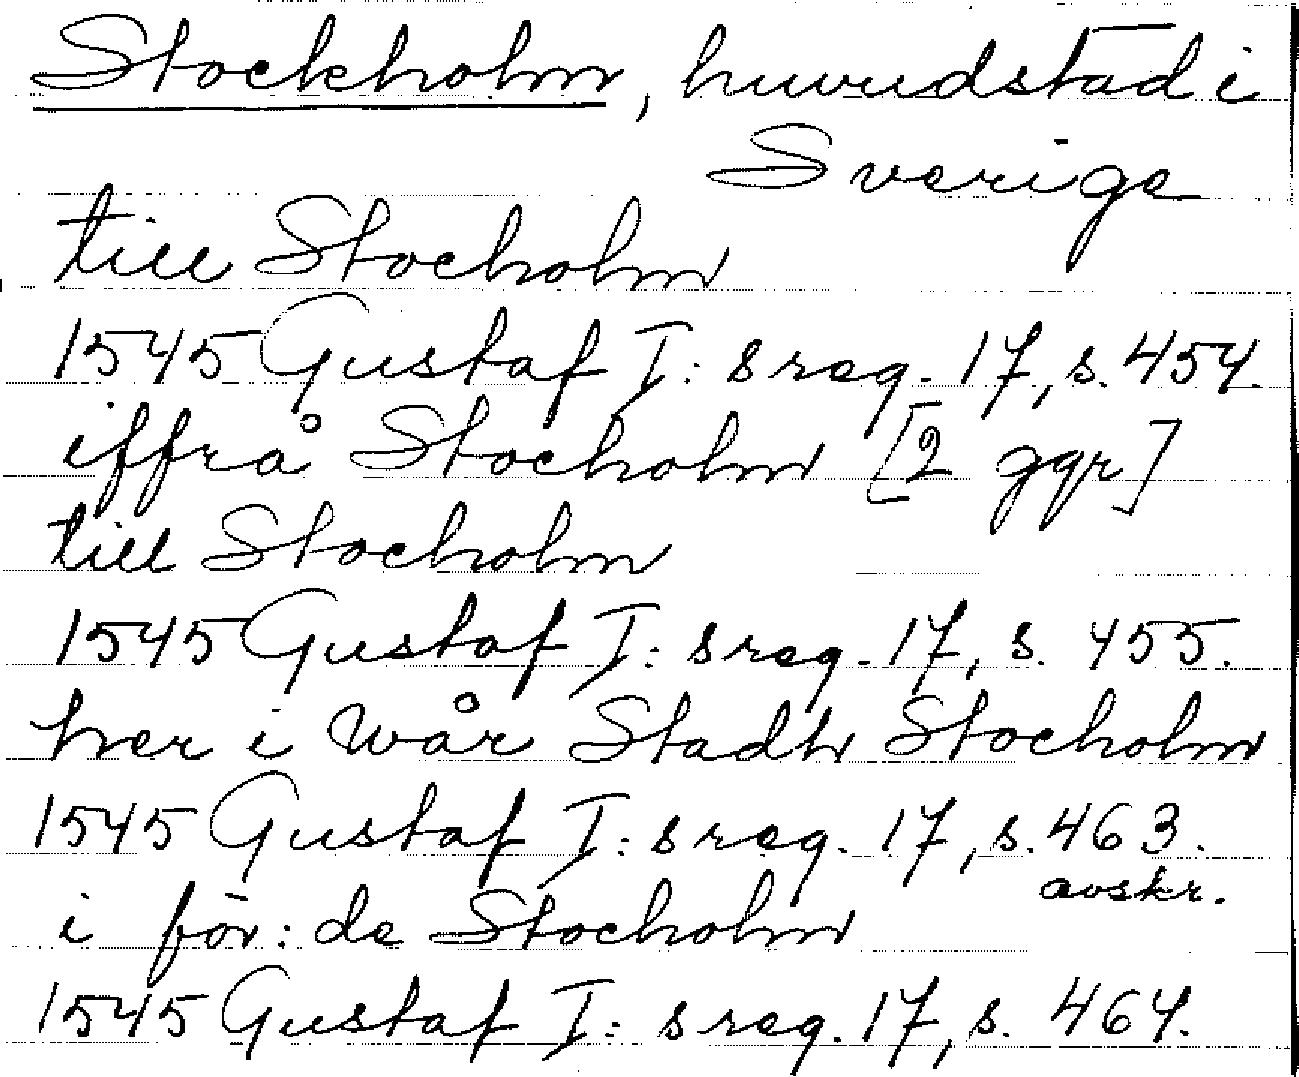 Stockholm, huvudstad i
Sverige
till Stocholm
1545 Gustaf I: s reg. 17, s. 454.
iffrå Stocholm [2 ggr]
till Stocholm
1545 Gustaf I: s reg. 17, s. 455.
her i wår Stadh Stocholm
1545 Gustaf I: s reg. 17, s. 463.
avskr.
i för: de Stocholm
1545 Gustaf I: s reg. 17, s. 464.